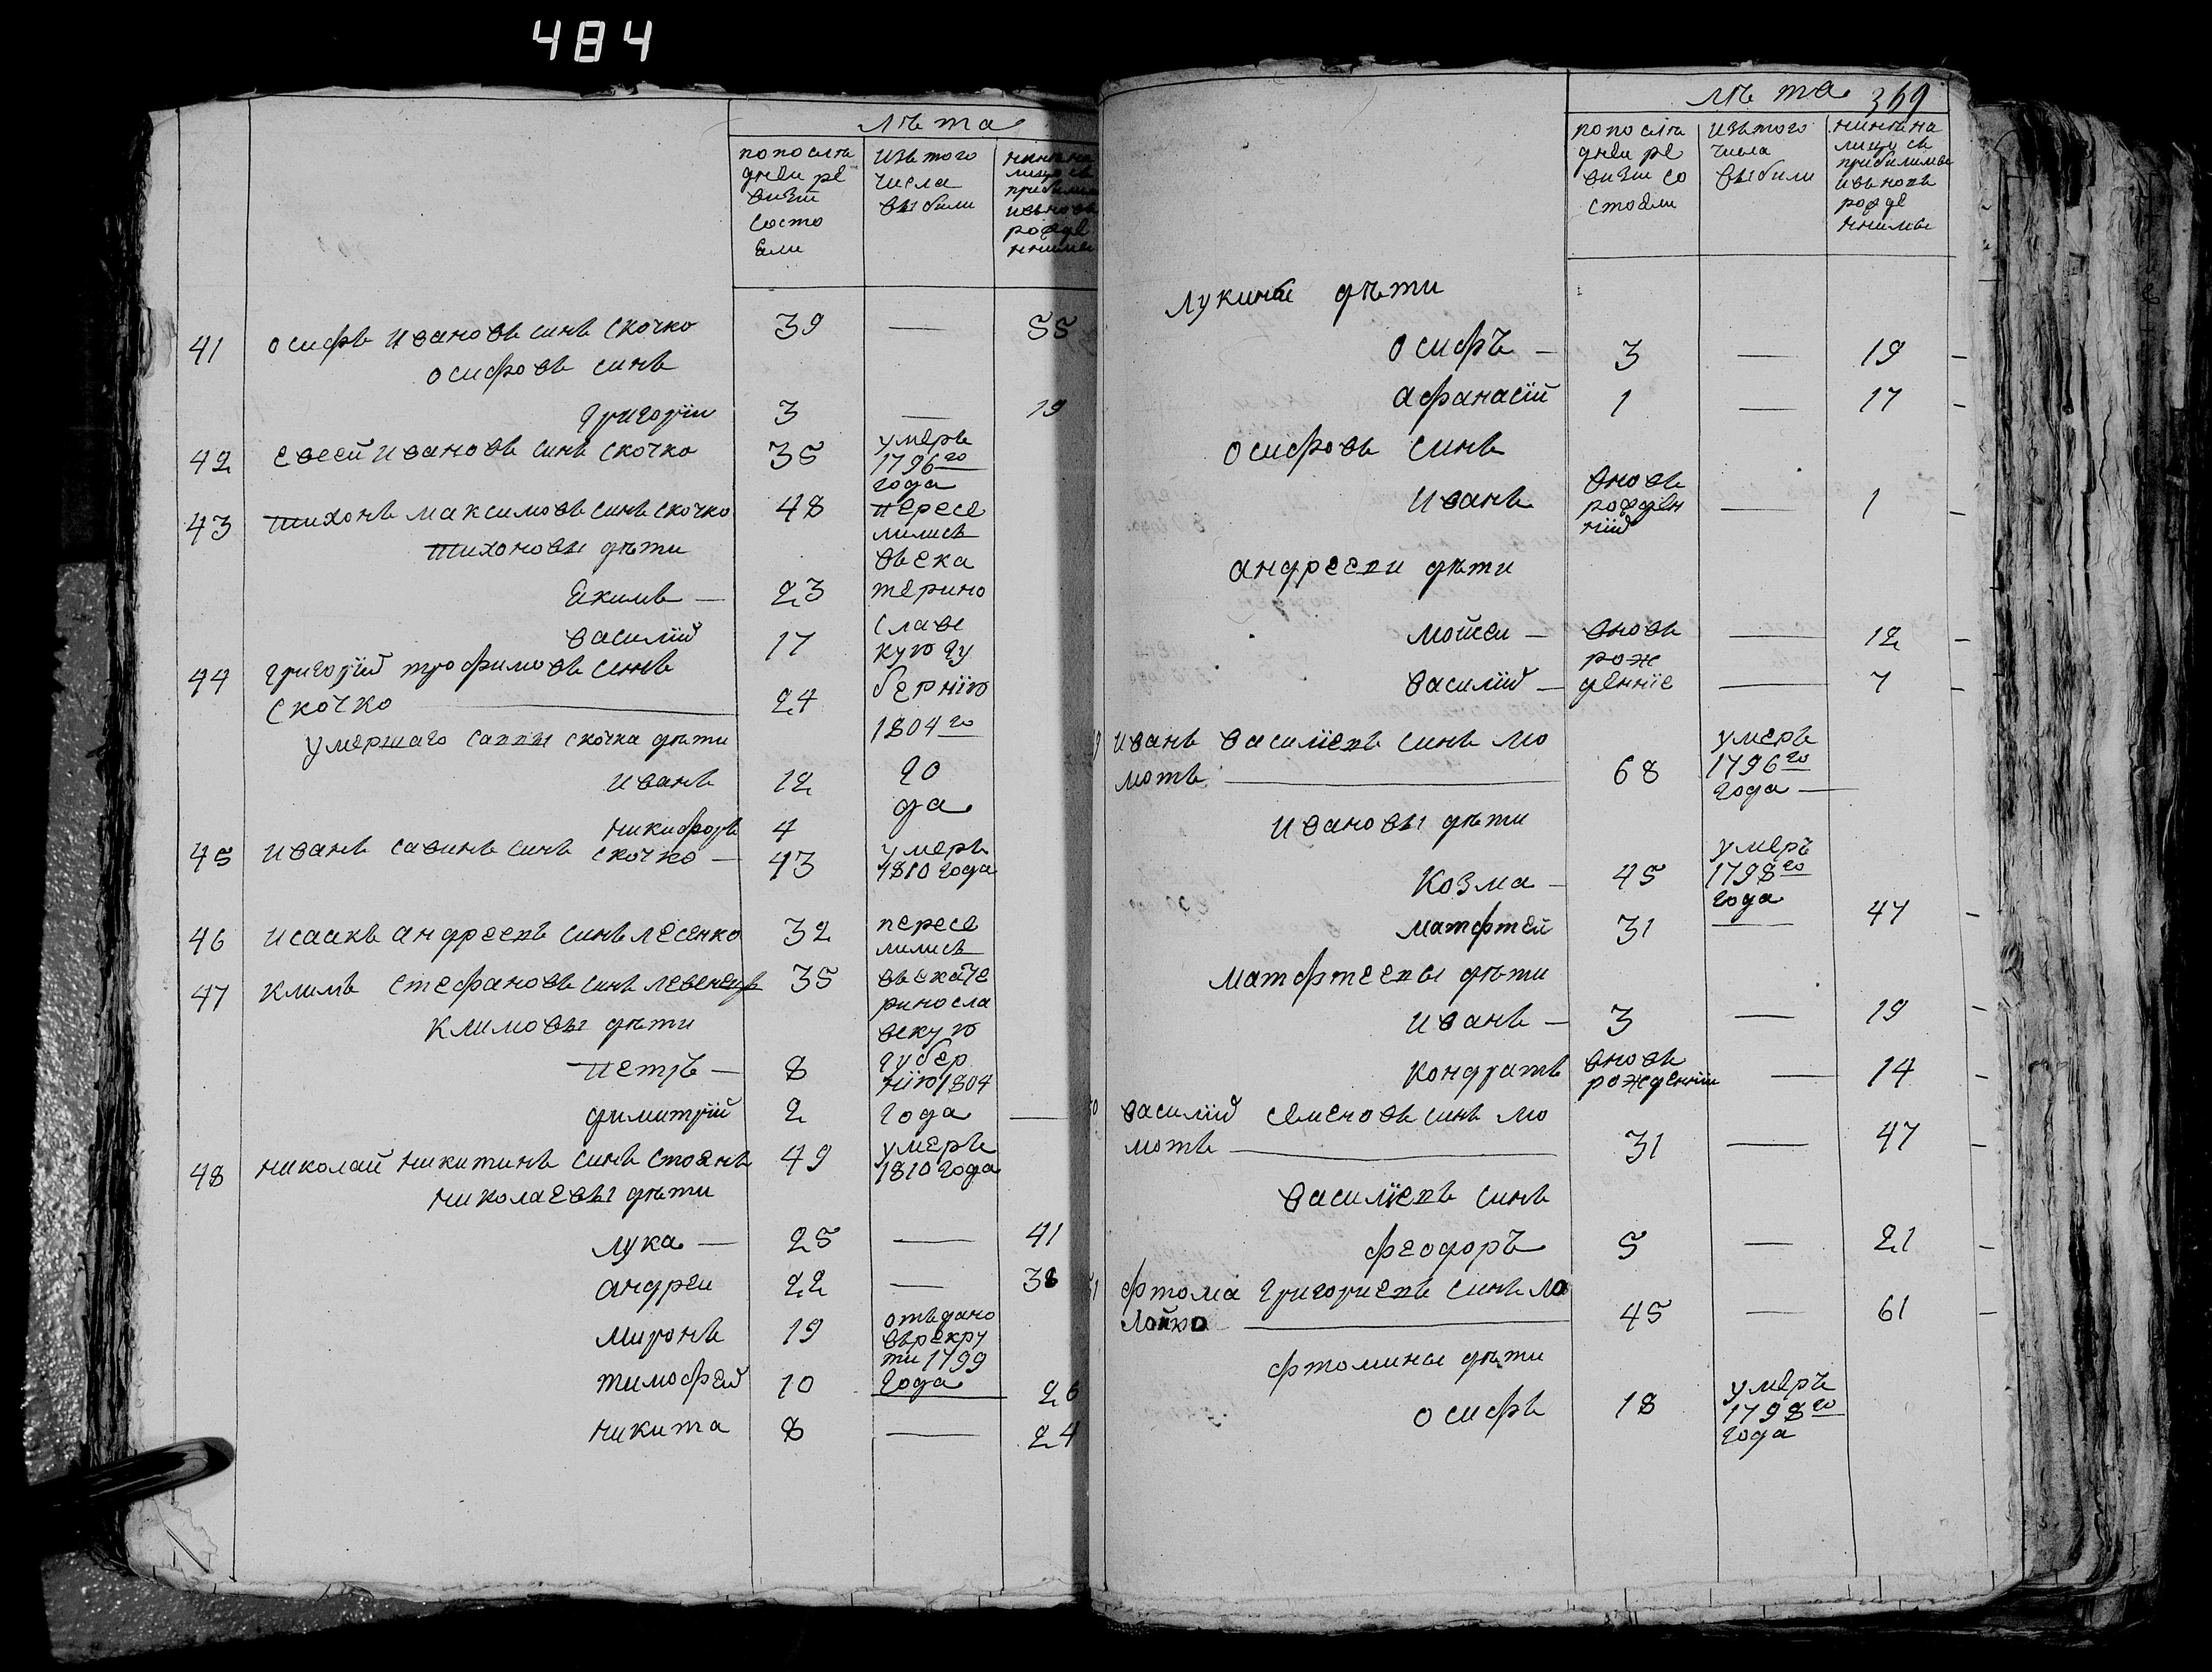 484
лѣта
попослѣ
дней ре
визіи
состо
яли
изътого
числа
выбыли
нинѣна
лицосъ
прибылими
ивьновь
рожде
нними
41 осифъ ивановъ синъ скочко 39 — 55
осифовъ синъ
григории 3 — 19
42 евсей ивановъ синъ скочко 35 умеръ
1796го
года
43 тихонъ максимовъ синъ скочко 48 пересе
лились
въека
терино
славс
кую гу
бернію
1804го
го
да
тихоновы дѣти
якимъ — 23
василий 17
44 григорий трофимовъ синъ
скочко 24
умершаго саппы скочка дѣти
иванъ 12
никифоръ 4
45 иванъ савинъ синъ скочко — 43 умеръ
1810 года
46 исаакъ андреевъ синъ лесенко 32 пересе
лились
въекате
риносла
вскую
губер
нію 1804
года —
47 климъ стефановъ синъ левенецъ 35
климовы дѣти
петръ — 8
димитрій 2
48 николай никитинъ синъ стоянъ 49 умеръ
1810 года
николаевы дѣти
лука — 25 — 41
андреи 22 — 38
миронъ 19 отъдано
въ рекру
ти 1799
года
тимофей 10 26
никита 8 — 24
лѣта 369
попослѣ
дней ре
визіи со
стояли
изътого
числа
выбыли
нинѣна
лицосъ
прибылими
ивьновь
рожде
нними
лукины дѣти
осифъ — 3 — 19 —
афанасій 1 — 17 —
осифовъ синъ
иванъ вновь
рожден
ний — 1 —
андрееви дѣти
мойсеи — вновь — 12 —
рож
василий — денніе — 7 —
9 иванъ василіевъ синъ мо
мотъ 68 умеръ
1796го
года —
ивановы дѣти
козма — 45 умеръ
1798го
года
матфтей 31 — 47 —
матфтеевы дѣти
иванъ — 3 — 19 —
кондратъ вновь
рожденніи — 14 —
50 василий семеновъ синъ мо
мотъ 31 — 47 —
василіевъ синъ
феодоръ 5 — 21 —
51 фтома григориевъ синъ ло
лойко 45 — 61 —
фтомины дѣти
осифъ 18 умеръ
1798го
года